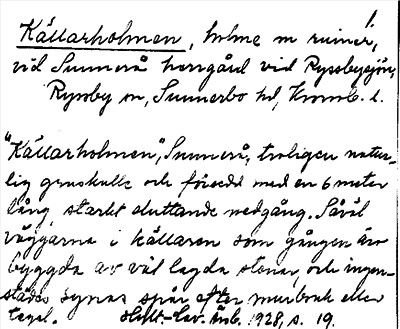 1.
Källarholmen, holme m ruiner,
vid Sunnerå herrgård vid Ryssbysjön,
Ryssby sn, Sunnerbo hd, Kronob. l.
"Källarholmen", Sunnerå, troligen natur-
lig gruskulle och försedd med en 6 meter
lång, starkt sluttande nedgång. Såväl
väggarna i källaren som gången äro
byggda av väl lagda stenar, och ingen-
städes synas spår efter murbruk eller
tegel. Hylt.-Cav. Årsb. 1928, s. 19.